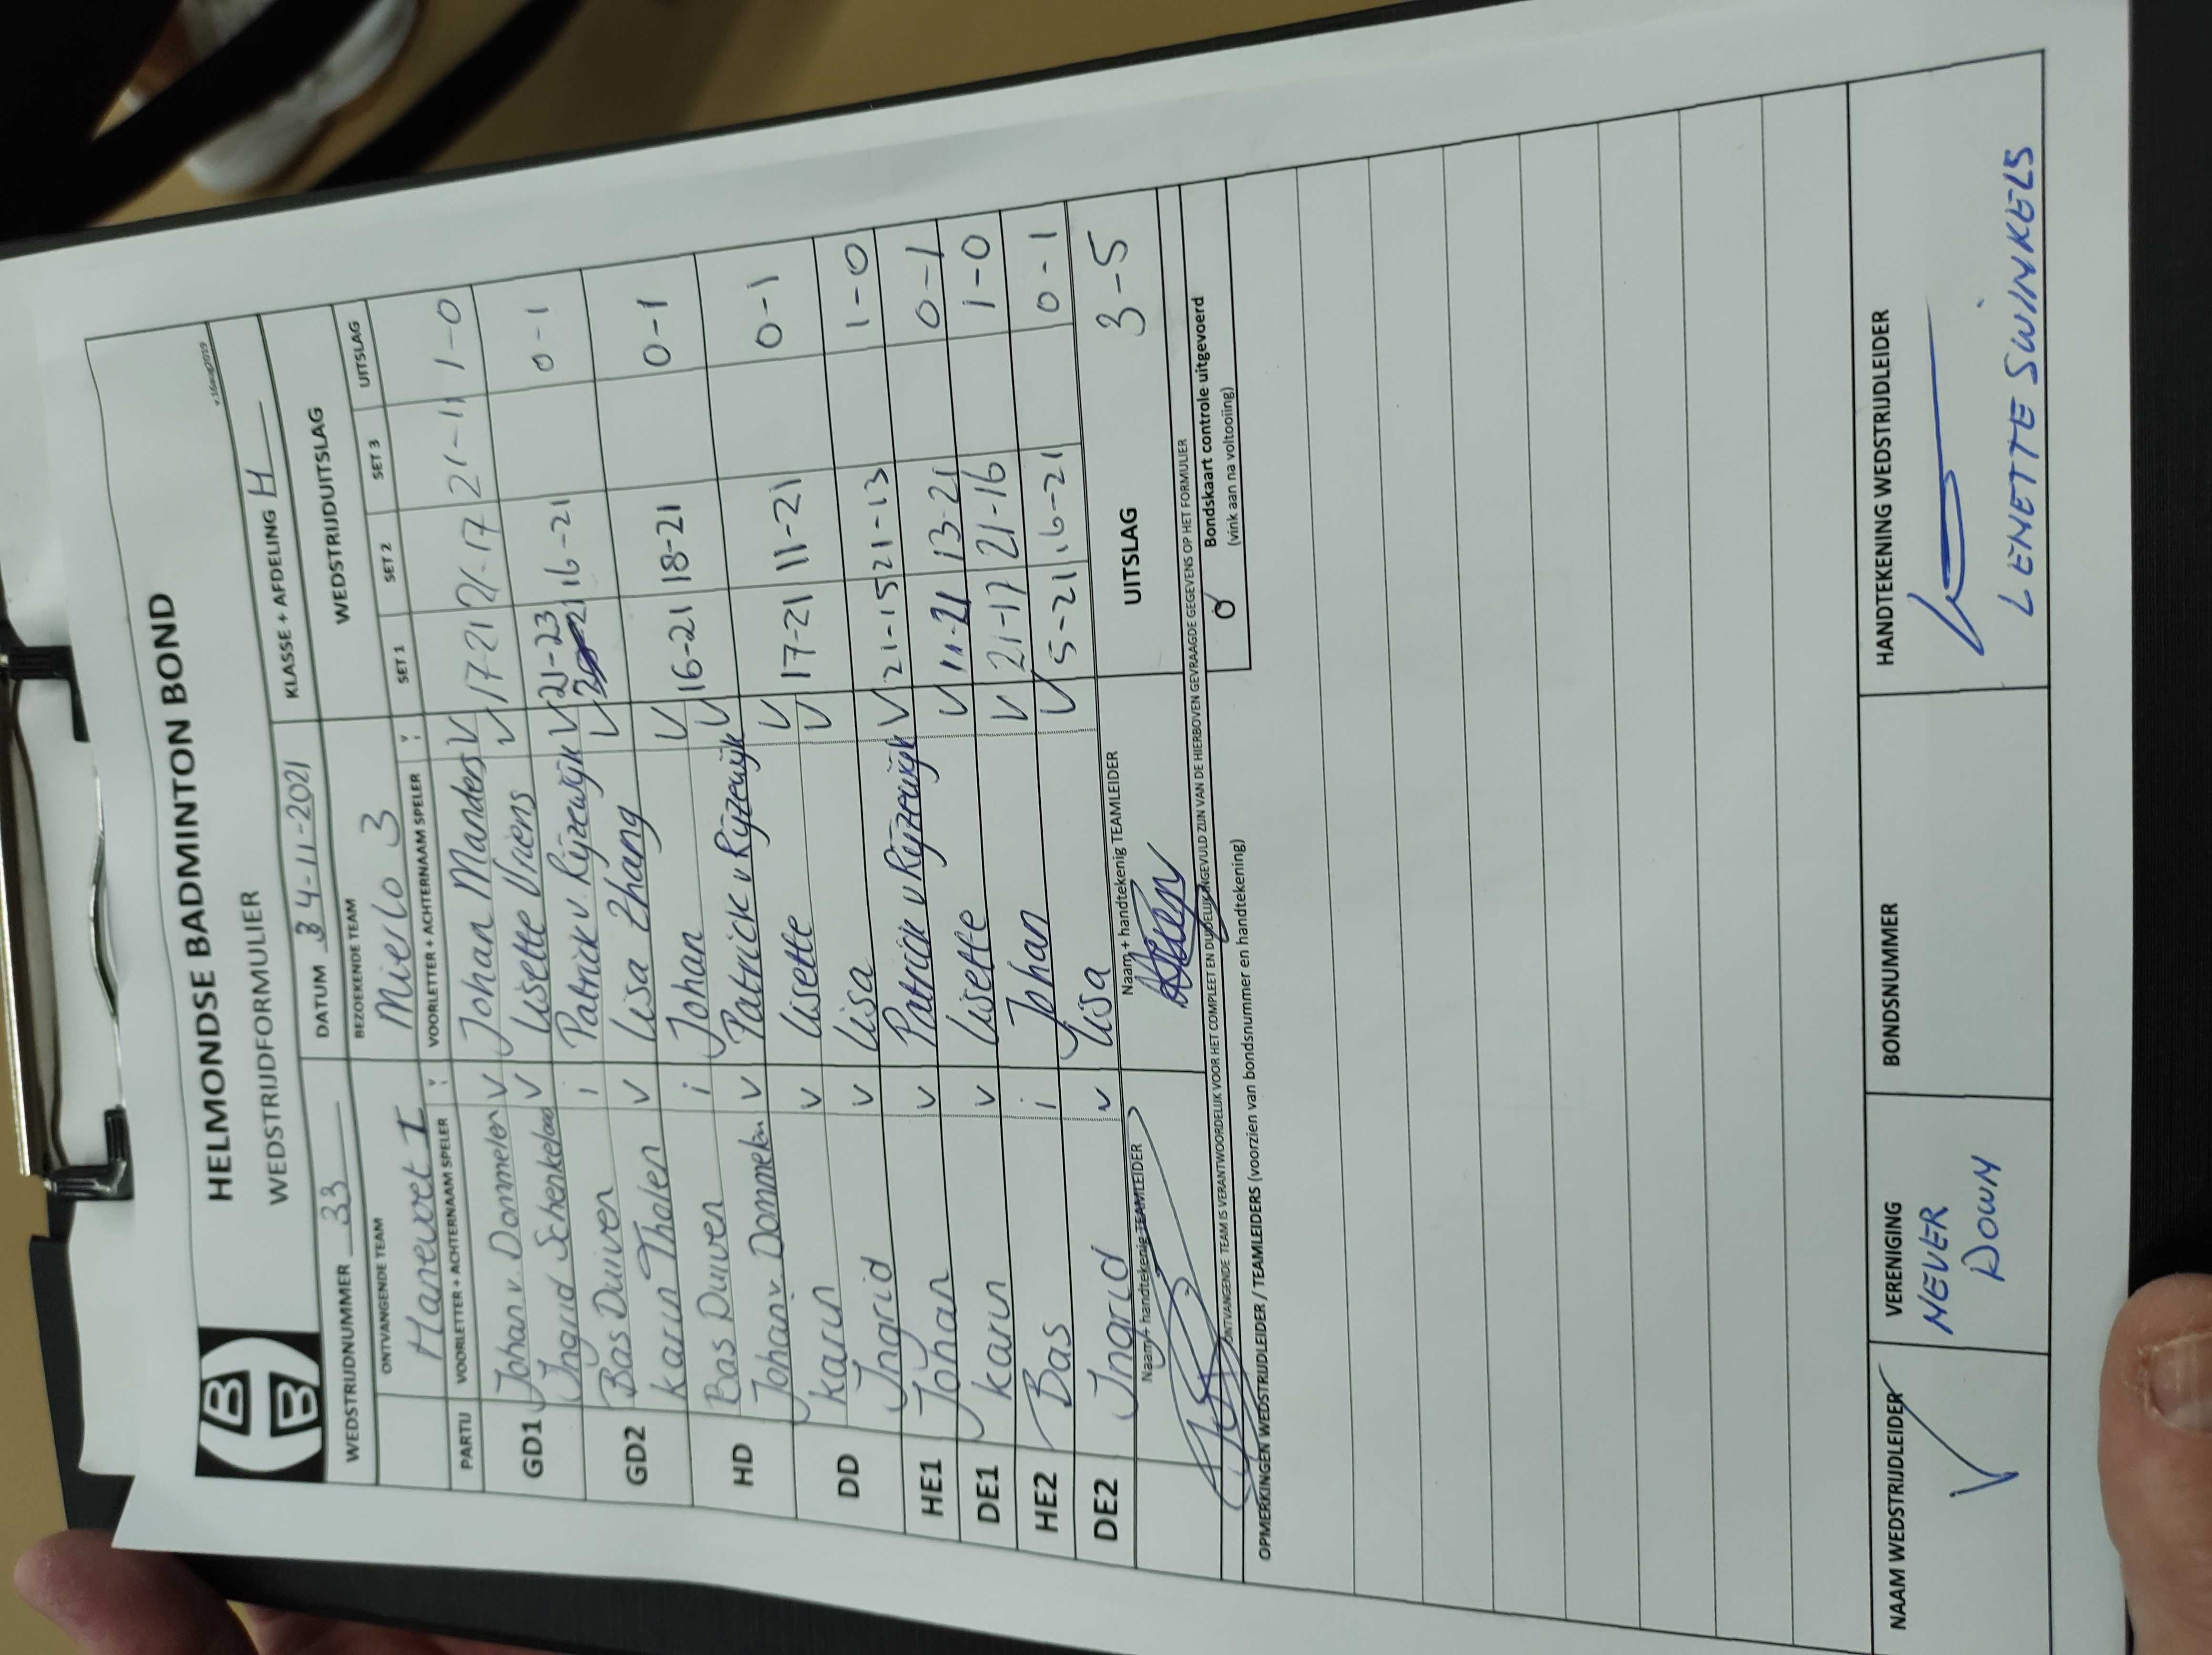 HELMONDSE BADMINTON BOND
WEDSTRIJDFORMULIER
v.16aug2019
WEDSTRIJDNUMMER 33 DATUM 4-11-2021 KLASSE + AFDELING H
ONTVANGENDE TEAM BEZOEKENDE TEAM WEDSTRIJDUITSLAG
Hanevoet I Mierlo 3
PARTIJ VOORLETTER + ACHTERNAAM SPELER VOORLETTER + ACHTERNAAM SPELER SET 1 SET 2 SET 3 UITSLAG
GD1 Johan v. Dommelen V Johan Manders V 17-21 21-17 21-11 1-0
Ingrid V Lisette Vriens V
GD2 Bas Duiven i Patrick v. Rijzewijk V 21-23 16-21 0-1
Karin Tholen V Lisa Zhang V
HD Bas Duiven i Johan V 16-21 18-21 0-1
Johan v. Dommelen V Patrick v Rijzewijk V
DD Karin V Lisette V 17-21 11-21 0-1
Ingrid V Lisa V
HE1 Johan V Patrick v Rijzewijk V 21-15 21-13 1-0
DE1 Karin V Lisette V 11-21 13-21 0-1
HE2 Bas i Johan V 21-17 21-16 1-0
DE2 Ingrid V Lisa V 5-21 16-21 0-1
Naam + handtekenig TEAMLEIDER Naam + handtekenig TEAMLEIDER UITSLAG 3-5
ONTVANGENDE TEAM IS VERANTWOORDELIJK VOOR HET COMPLEET EN DUIDELIJK INGEVULD ZIJN VAN DE HIERBOVEN GEVRAAGDE GEGEVENS OP HET FORMULIER
Bondskaart controle uitgevoerd
(vink aan na voltooiing)
OPMERKINGEN WEDSTRIJDLEIDER / TEAMLEIDERS (voorzien van bondsnummer en handtekening)
NAAM WEDSTRIJDLEIDER VERENIGING BONDSNUMMER HANDTEKENING WEDSTRIJDLEIDER
NEVER
DOWN
LENETTE SWINKELS